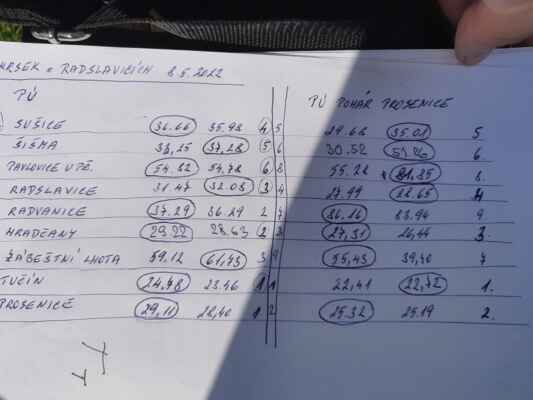 RADSLAVICÍCH 8.5.2022
PÚ
PÚ POHÁR PROSENICE
SUŠICE 36.66 35.98 4 5 29.68 35.01 5.
ŠIŠMA 38,25 37,28 5 6 30.52 6.
PAVLOVICE U PŘ. 54,82 54,78 6 8 55.22 81,85 8.
RADSLAVICE 31.47 32.08 3 4 27.99 28.65 4
RADVANICE 37.29 36.29 2 7 36.16 33.94 9
HRADČANY 29,22 28.63 2 3 27,31 26,44 3.
ZÁBEŠTNÍ LHOTA 59.12 61,73 3 9 55,43 39,40 7
TUČÍN 24,78 23.46 1 1 22,41 22,72 1.
PROSENICE 29,11 28,40 1 2 25.32 25.19 2.